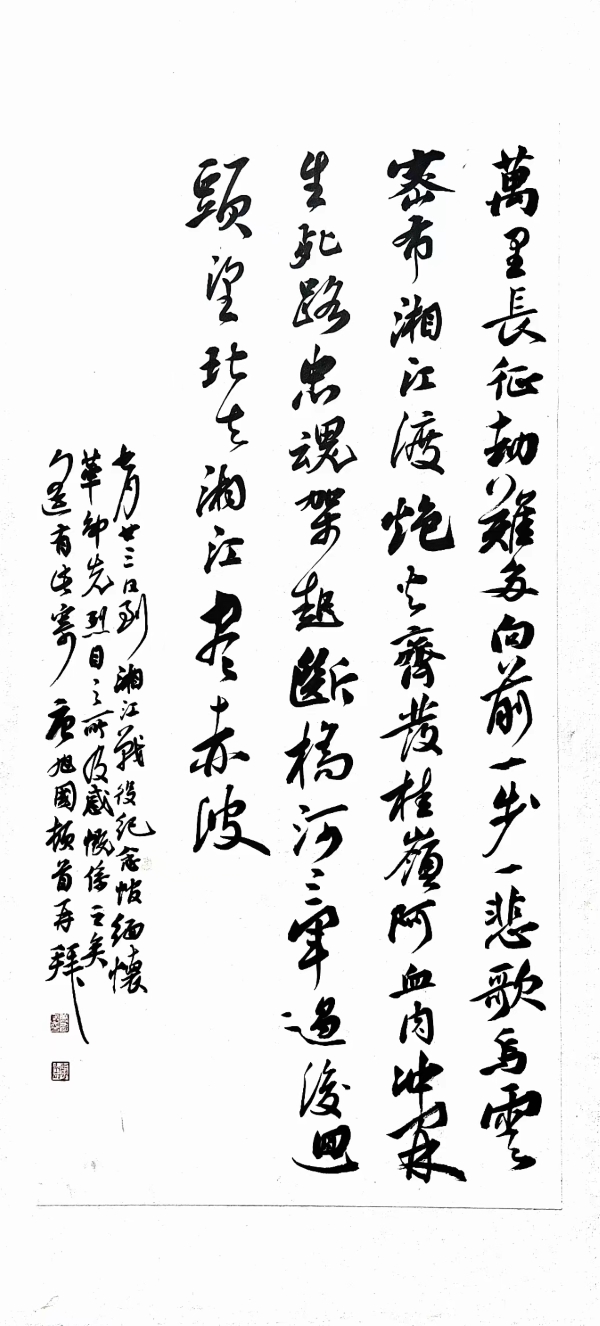 萬里長征劫難多向前一步一悲歌烏雲
密布湘江渡炮火齊發桂嶺阿血肉冲開
生死路忠魂架起斷橋河三軍過後迴
頭望北去湘江盡赤波
七月廿三日到湘江戰役紀念館緬懷
華師先烈目之所及感慨係之矣
句選有生寄唐旭國頓首再拜